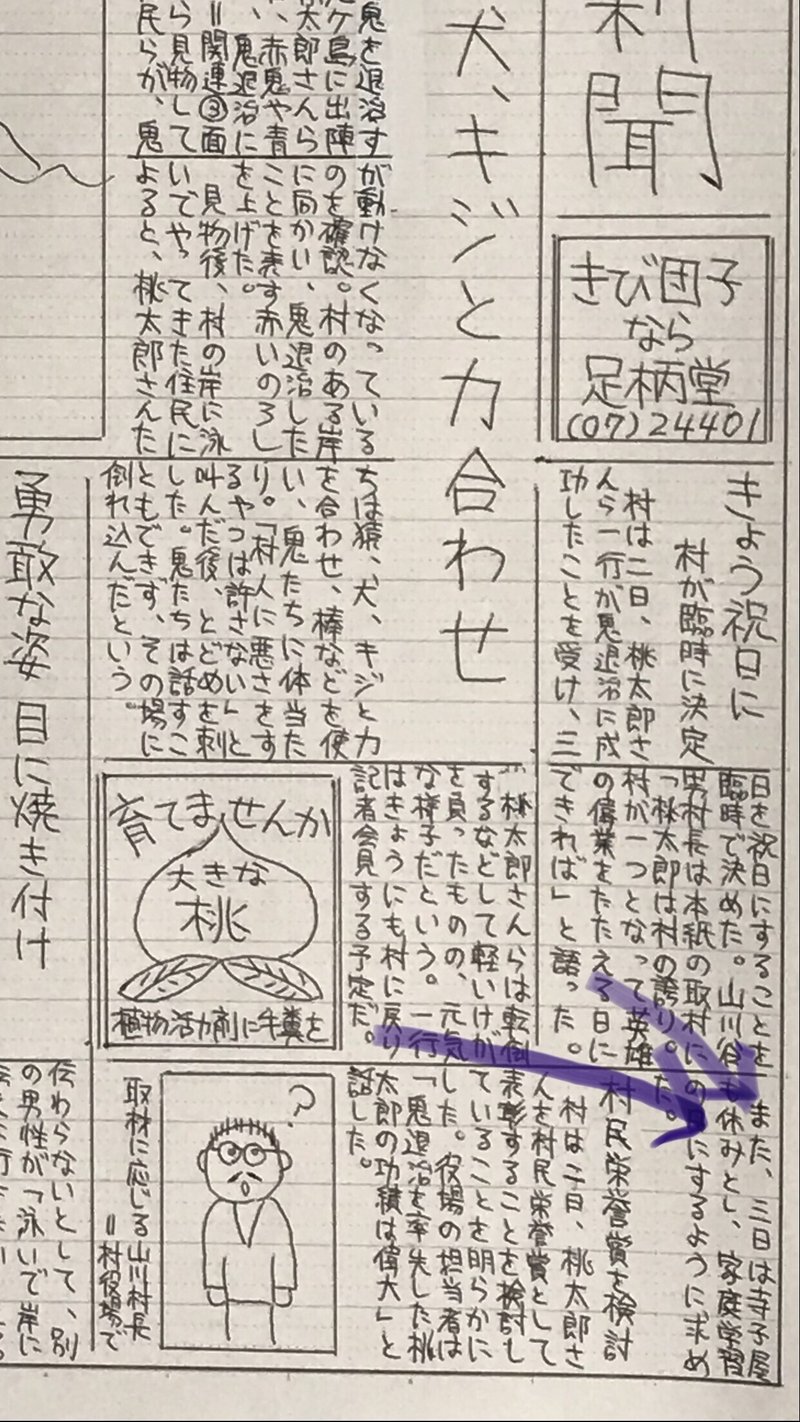 新聞
きび団子
なら
足柄堂
(07)24401
犬、キジと力合わせ
鬼を退治す
ケ島に出陣
太郎さんら
、赤鬼や青
、鬼退治に
＝関連③面
ら見物して
民らが、鬼
が動けなくなっている
のを確認。村のある岸
に向かい、鬼退治した
ことを表す赤いのろし
を上げた。
見物後、村の岸に泳
いでやってきた住民に
よると、桃太郎さんた
ちは猿、犬、キジと力
を合わせ、棒などを使
い、鬼たちに体当た
り。「村人に悪さをす
るやつは許さない」と
叫んだ後、とどめを刺
した。鬼たちは話すこ
ともできず、その場に
倒れ込んだという。
桃太郎さんらは転倒
するなどして軽いけが
を負ったものの、元気
な様子だという。一行
はきょうにも村に戻り
記者会見する予定だ。
きょう祝日に
村が臨時に決定
村は二日、桃太郎さ
んら一行が鬼退治に成
功したことを受け、三
日を祝日にすることを
臨時で決めた。山川谷
男村長は本紙の取材に
「桃太郎は村の誇り。
村が一つとなって英雄
の偉業をたたえる日に
できれば」と語った。
また、三日は寺子屋
も休みとし、家庭学習
の日にするように求め
た。
村民栄誉賞を検討
村は二日、桃太郎さ
んを村民栄誉賞として
表彰することを検討し
ていることを明らかに
した。役場の担当者は
「鬼退治を率先した桃
太郎の功績は偉大」と
話した。
育てませんか
大きな
桃
植物活力剤に牛糞を
?
取材に応じる山川村長
＝村役場で
勇敢な姿 目に焼き付け
伝わらないとして、別
の男性が「泳いで岸に